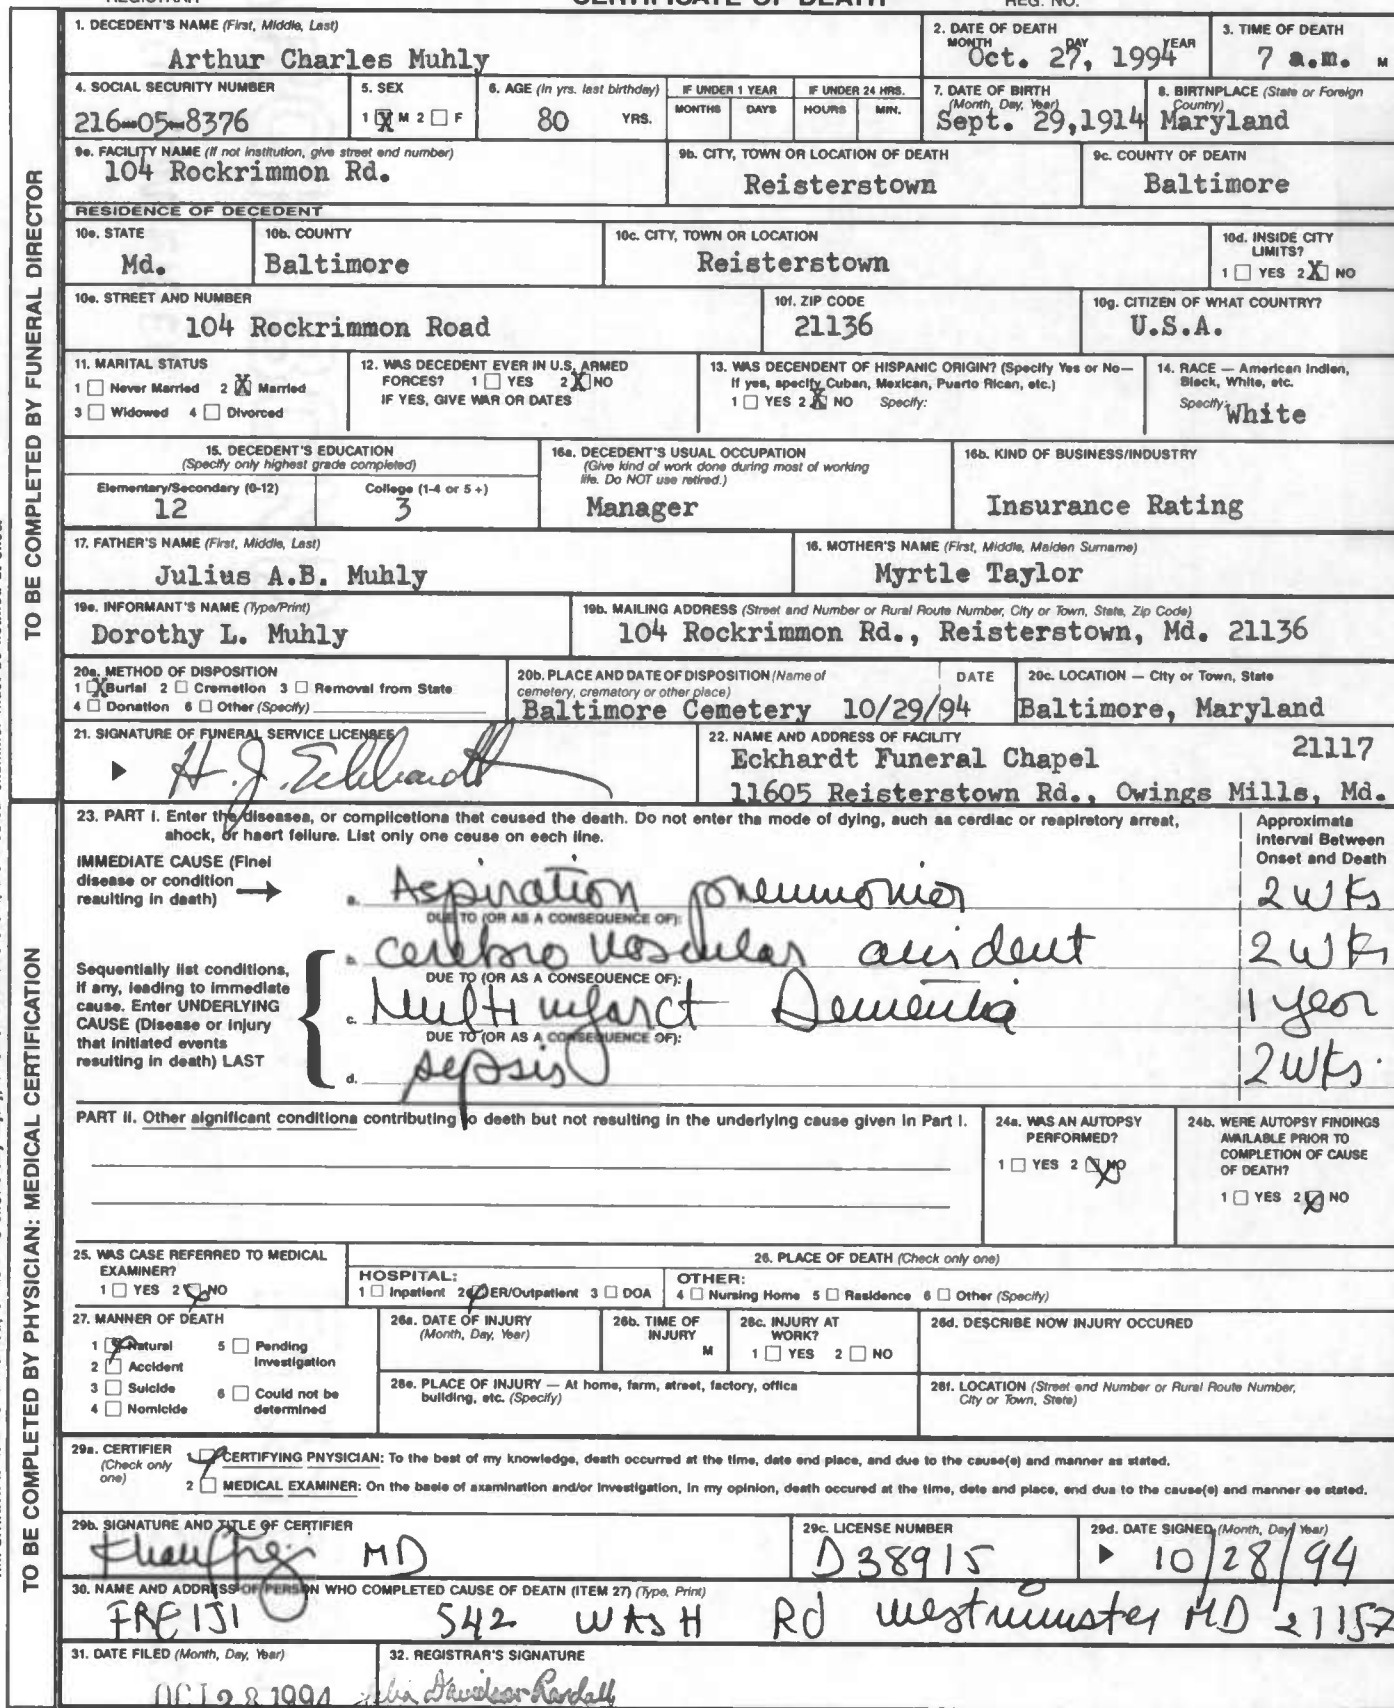 CERTIFICATE OF DEATH
REGISTRAR REG. NO.
1. DECEDENT'S NAME (First, Middle, Last)
Arthur Charles Muhly
2. DATE OF DEATH
MONTH DAY YEAR
Oct. 27, 1994
3. TIME OF DEATH
7 a.m. M
4. SOCIAL SECURITY NUMBER
216-05-8376
5. SEX
1 X M 2 F
6. AGE (In yrs. last birthday)
80 YRS.
IF UNDER 1 YEAR
MONTHS DAYS
IF UNDER 24 HRS.
HOURS MIN.
7. DATE OF BIRTH
(Month, Day, Year)
Sept. 29,1914
8. BIRTHPLACE (State or Foreign
Country)
Maryland
9a. FACILITY NAME (If not institution, give street and number)
104 Rockrimmon Rd.
9b. CITY, TOWN OR LOCATION OF DEATH
Reisterstown
9c. COUNTY OF DEATH
Baltimore
RESIDENCE OF DECEDENT
10a. STATE
Md.
10b. COUNTY
Baltimore
10c. CITY, TOWN OR LOCATION
Reisterstown
10d. INSIDE CITY
LIMITS?
1 YES 2 X NO
10e. STREET AND NUMBER
104 Rockrimmon Road
10f. ZIP CODE
21136
10g. CITIZEN OF WHAT COUNTRY?
U.S.A.
11. MARITAL STATUS
1 Never Married 2 X Married
3 Widowed 4 Divorced
12. WAS DECEDENT EVER IN U.S. ARMED
FORCES? 1 YES 2 X NO
IF YES, GIVE WAR OR DATES
13. WAS DECENDENT OF HISPANIC ORIGIN? (Specify Yes or No—
If yes, specify Cuban, Mexican, Puerto Rican, etc.)
1 YES 2 X NO Specify:
14. RACE — American Indian,
Black, White, etc.
Specify: White
15. DECEDENT'S EDUCATION
(Specify only highest grade completed)
Elementary/Secondary (0-12)
12
College (1-4 or 5+)
3
16a. DECEDENT'S USUAL OCCUPATION
(Give kind of work done during most of working
life. Do NOT use retired.)
Manager
16b. KIND OF BUSINESS/INDUSTRY
Insurance Rating
17. FATHER'S NAME (First, Middle, Last)
Julius A.B. Muhly
18. MOTHER'S NAME (First, Middle, Maiden Surname)
Myrtle Taylor
19a. INFORMANT'S NAME (Type/Print)
Dorothy L. Muhly
19b. MAILING ADDRESS (Street and Number or Rural Route Number, City or Town, State, Zip Code)
104 Rockrimmon Rd., Reisterstown, Md. 21136
20a. METHOD OF DISPOSITION
1 X Burial 2 Cremation 3 Removal from State
4 Donation 6 Other (Specify)
20b. PLACE AND DATE OF DISPOSITION (Name of
cemetery, crematory or other place) DATE
Baltimore Cemetery 10/29/94
20c. LOCATION — City or Town, State
Baltimore, Maryland
21. SIGNATURE OF FUNERAL SERVICE LICENSEE
H. J. Eckhardt
22. NAME AND ADDRESS OF FACILITY
Eckhardt Funeral Chapel 21117
11605 Reisterstown Rd., Owings Mills, Md.
TO BE COMPLETED BY FUNERAL DIRECTOR
23. PART I. Enter the diseases, or complications that caused the death. Do not enter the mode of dying, such as cardiac or respiratory arrest,
shock, or heart failure. List only one cause on each line.
Approximate
Interval Between
Onset and Death
IMMEDIATE CAUSE (Final
disease or condition
resulting in death)
a. Aspiration pneumonia 2 wks
DUE TO (OR AS A CONSEQUENCE OF):
b. cerebro vascular accident 2 wks
DUE TO (OR AS A CONSEQUENCE OF):
c. Multi infarct Dementia 1 year
DUE TO (OR AS A CONSEQUENCE OF):
d. sepsis 2 wks.
Sequentially list conditions,
if any, leading to immediate
cause. Enter UNDERLYING
CAUSE (Disease or injury
that initiated events
resulting in death) LAST
PART II. Other significant conditions contributing to death but not resulting in the underlying cause given in Part I.
24a. WAS AN AUTOPSY
PERFORMED?
1 YES 2 X NO
24b. WERE AUTOPSY FINDINGS
AVAILABLE PRIOR TO
COMPLETION OF CAUSE
OF DEATH?
1 YES 2 X NO
25. WAS CASE REFERRED TO MEDICAL
EXAMINER?
1 YES 2 X NO
26. PLACE OF DEATH (Check only one)
HOSPITAL:
1 Inpatient 2 ER/Outpatient 3 DOA
OTHER:
4 Nursing Home 5 Residence 6 Other (Specify)
27. MANNER OF DEATH
1 Natural 5 Pending
Investigation
2 Accident
3 Suicide 6 Could not be
determined
4 Homicide
28a. DATE OF INJURY
(Month, Day, Year)
28b. TIME OF
INJURY
M
28c. INJURY AT
WORK?
1 YES 2 NO
28d. DESCRIBE HOW INJURY OCCURED
28e. PLACE OF INJURY — At home, farm, street, factory, office
building, etc. (Specify)
28f. LOCATION (Street and Number or Rural Route Number,
City or Town, State)
29a. CERTIFIER
(Check only
one)
1 CERTIFYING PHYSICIAN: To the best of my knowledge, death occurred at the time, date and place, and due to the cause(s) and manner as stated.
2 MEDICAL EXAMINER: On the basis of examination and/or investigation, in my opinion, death occured at the time, date and place, and due to the cause(s) and manner as stated.
29b. SIGNATURE AND TITLE OF CERTIFIER
MD
29c. LICENSE NUMBER
D38915
29d. DATE SIGNED (Month, Day, Year)
10/28/94
30. NAME AND ADDRESS OF PERSON WHO COMPLETED CAUSE OF DEATH (ITEM 27) (Type, Print)
FREIJI 542 WASH Rd westminster MD 21157
31. DATE FILED (Month, Day, Year)
OCT 28 1994
32. REGISTRAR'S SIGNATURE
TO BE COMPLETED BY PHYSICIAN: MEDICAL CERTIFICATION